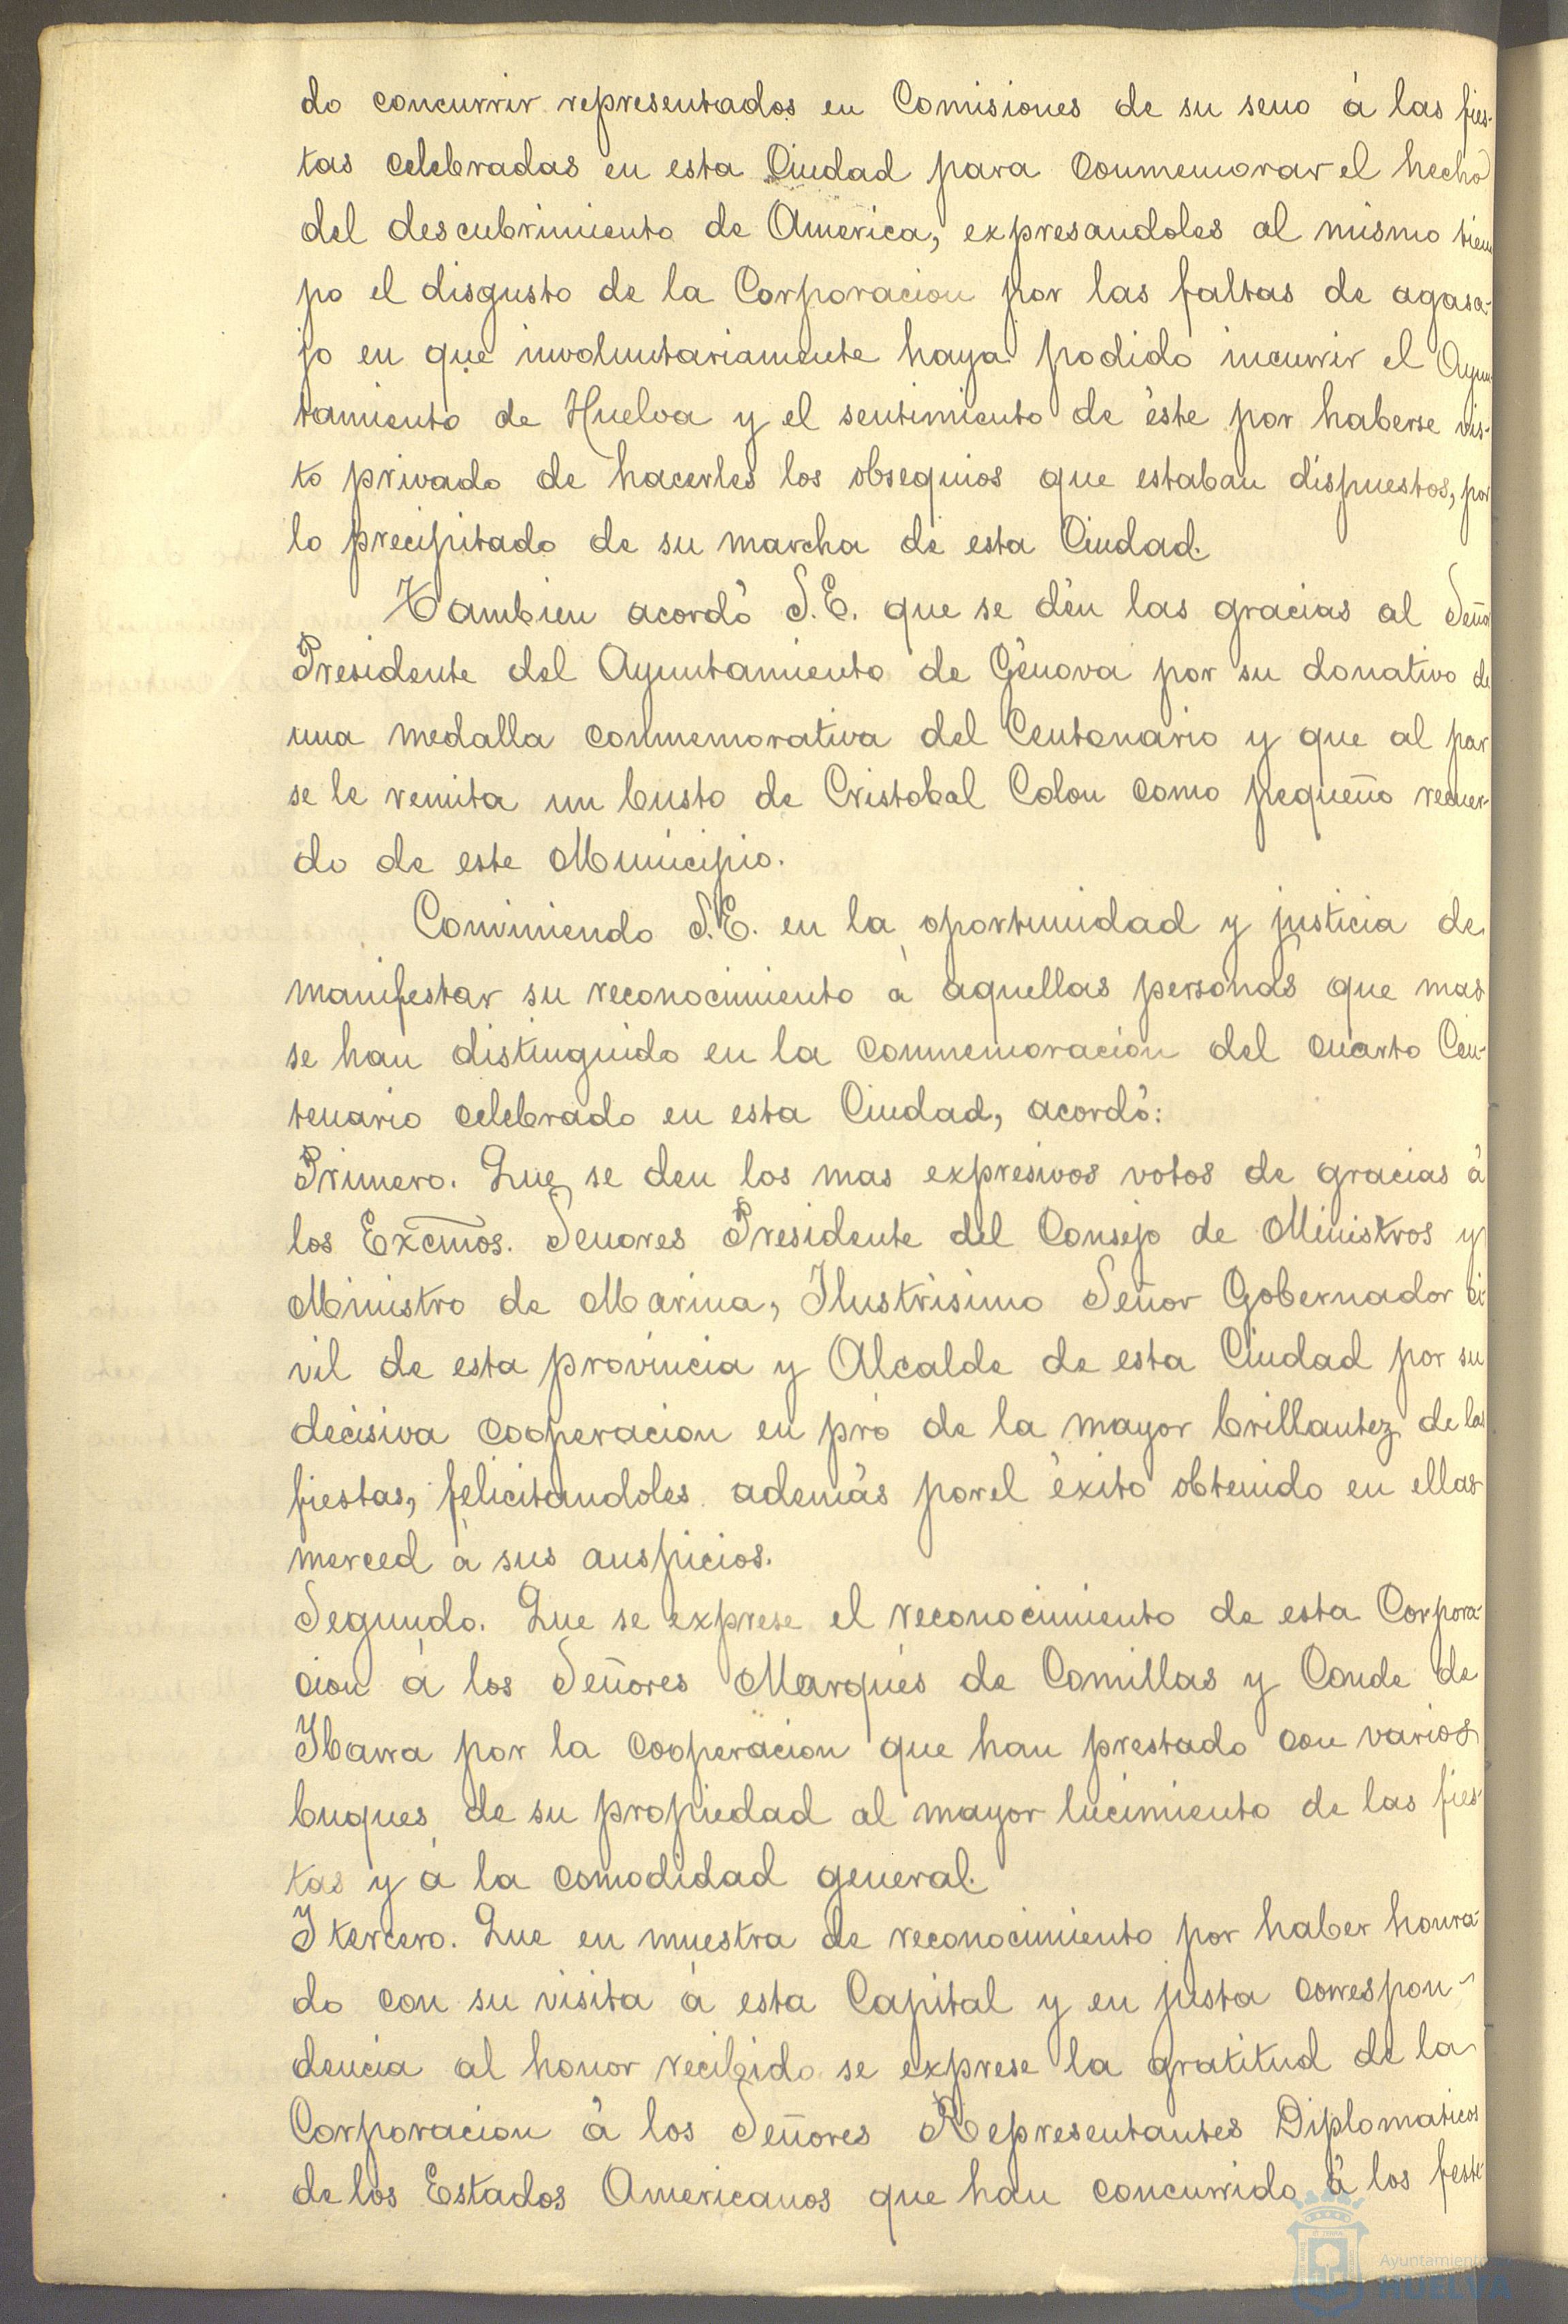 do concurrir representados en Comisiones de su seno á las fies-
tas celebradas en esta Ciudad para conmemorar el hecho
del descubrimiento de America, expresandoles al mismo tiem
po el disgusto de la Corporacion por las faltas de agasa-
jo en que involuntariamente haya podido incurrir el Ayun
tamiento de Huelva y el sentimiento de éste por haberse vis-
to privado de hacerles los obsequios que estaban dispuestos, por
lo precipitado de su marcha de esta Ciudad.
Tambien acordó S.E. que se dén las gracias al Señor
Presidente del Ayuntamiento de Génova por su donativo de
una medalla conmemorativa del Centenario y que al par
se le remita un busto de Cristobal Colon como pequeño recuer-
do de este Municipio.
Conviniendo S.E. en la oportunidad y justicia de
manifestar su reconocimiento á aquellas personas que mas
se han distinguido en la conmemoracion del cuarto Cen-
tenario celebrado en esta Ciudad, acordó:
Primero. Que se den los mas expresivos votos de gracias á
los Excmos. Senores Presidente del Consejo de Ministros y
Ministro de Marina, Ilustrisimo Señor Gobernador Ci
vil de esta provincia y Alcalde de esta Ciudad por su
decisiva cooperacion en pró de la mayor brillantez de las
fiestas, felicitandoles además por el éxito obtenido en ellas
merced á sus auspicios.
Segundo. Que se exprese el reconocimiento de esta Corpora-
cion á los Señores Marqués de Comillas y Conde de
Ibarra por la cooperacion que han prestado con varios
buques de su propiedad al mayor lucimiento de las fies-
tas y á la comodidad general.
Y tercero. Que en muestra de reconocimiento por haber honra-
do con su visita á esta Capital y en justa correspon-
dencia al honor recibido se exprese la gratitud de la
Corporacion á los Señores Representantes Diplomaticos
de los Estados Americanos que han concurrido á los feste-
Ayuntamiento
HUELVA